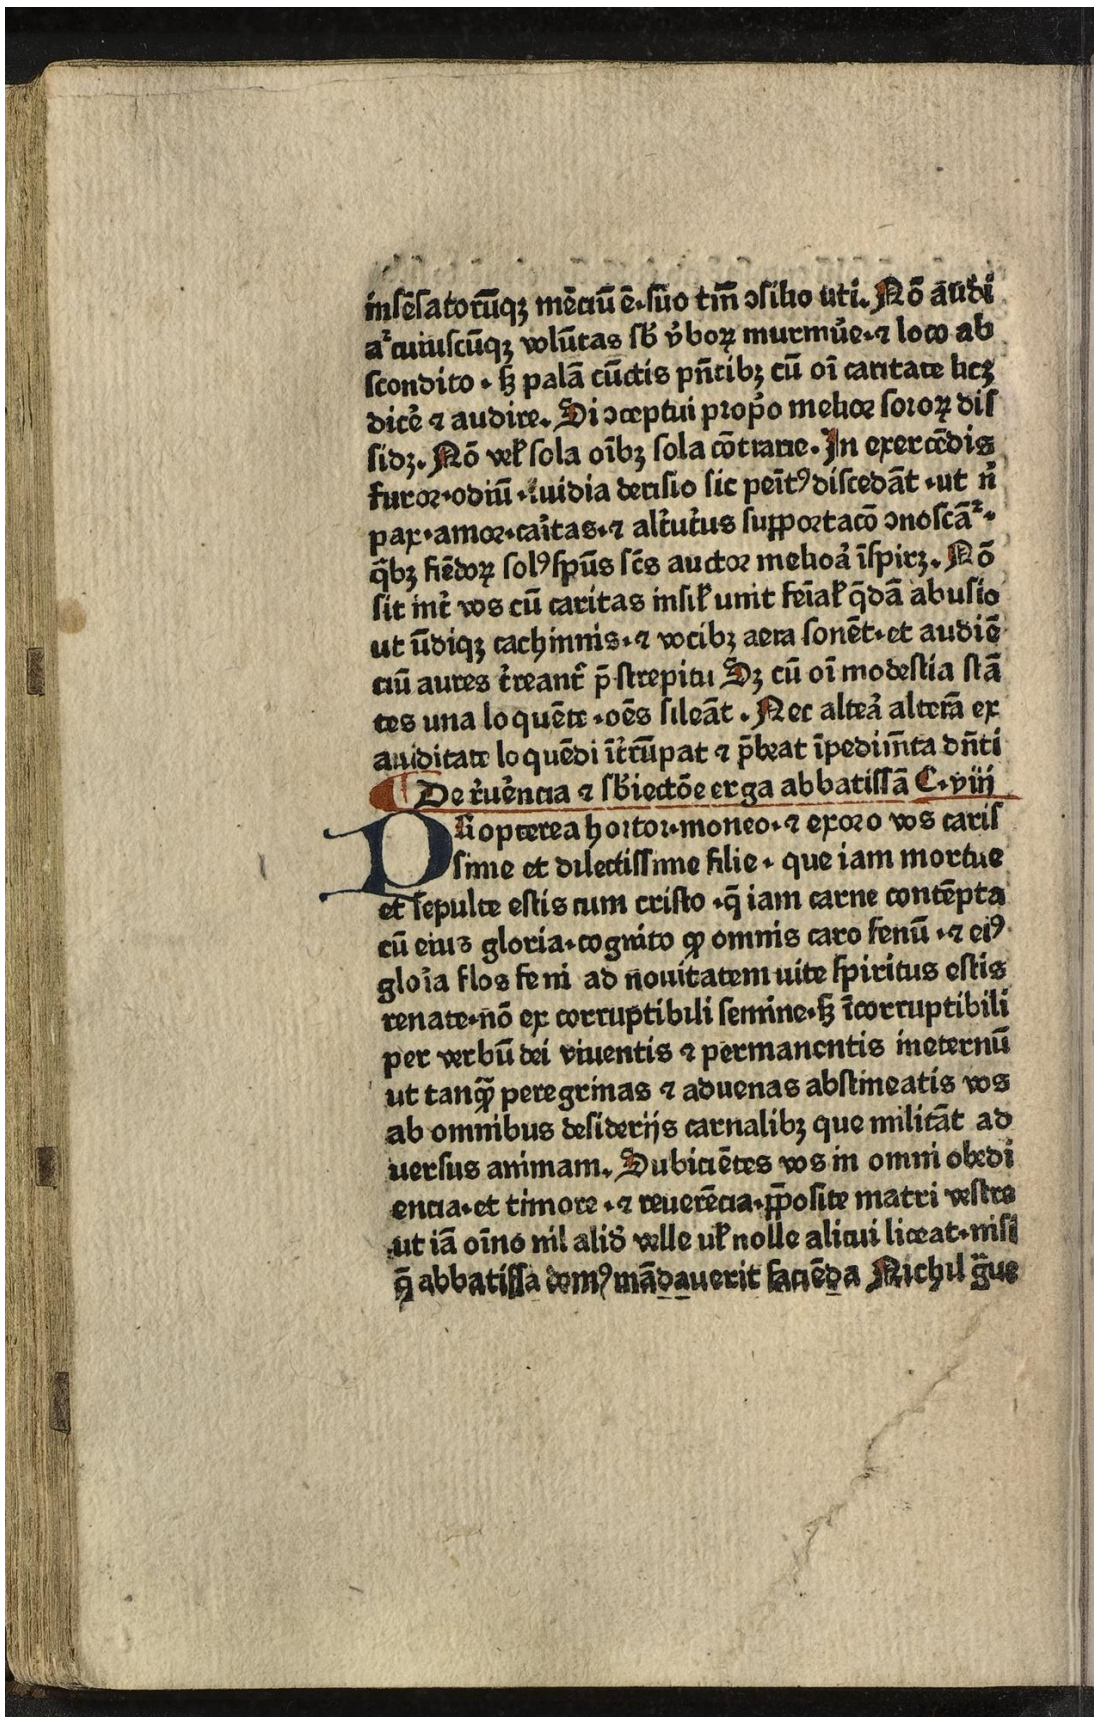 insēsatorūqꝫ mēciū ē·suo tm̄ ↄsilio uti. Nō audi
at᷑ cuiuscūqꝫ volūtas sb̄ v̓boꝝ murmur̓e·⁊ loco ab
scondito · sꝫ palā cūctis pn̄tibꝫ cū oī caritate licꝫ
dicer̓ ⁊ audire. Si ↄceptui prop̓o melior soroꝝ dis
sidꝫ. Nō vel̄ sola oībꝫ sola cōtrarie. In exercēdis
furor·odiū·īuidia derisio sic peīt⁹ discedāt ·ut n̄
pax·amor·car̓itas·⁊ alt̓ut̓us supportacō ↄnoscāt᷑·
q̄bꝫ fiēdoꝝ sol⁹ sp̄us sc̄s auctor melioa̓ īspirꝫ. Nō
sit int̓ vos cū caritas insil̄ unit feīal̄ q̄dā abusio
ut ūdiqꝫ cachinnis·⁊ vocibꝫ aera sonēt·et audiē
ciū aures t̓reant᷑ p̄ strepitu Sꝫ cū oī modestia stā
tes una loquēte ·oēs sileāt . Nec altea̓ alterā ex
auiditate loquēdi īt̓rūpat ⁊ p̄beat īpedim̄ta dn̄ti
¶ De r̓uer̓ncia ⁊ sb̄iectōe erga abbatissā C·viij
PRopterea hortor·moneo·⁊ exoro vos caris
sime et dilectissime filie · que iam mortue
et sepulte estis cum cristo ·q̄ iam carne contēpta
cū eius gloria·cognito ꝙ omnis caro fenū ·⁊ ei⁹
glor̓ia flos feni ad nouitatem uite spiritus estis
renate·nō ex corruptibili semine·sꝫ īcorruptibili
per verbū dei viuentis ⁊ permanentis ineternū
ut tanꝙ̄ peregrinas ⁊ aduenas abstineatis vos
ab omnibus desiderijs carnalibꝫ que militāt ad
uersus animam. Subiciētes vos in omni obedi
encia·et timore ·⁊ reuerēcia·p̄posite matri vestre
ut iā oīno nil aliđ velle ul̄ nolle alicui liceat·nisi
q̄ abbatissa dom⁹ mādauerit faciēda Nichil g̃ue